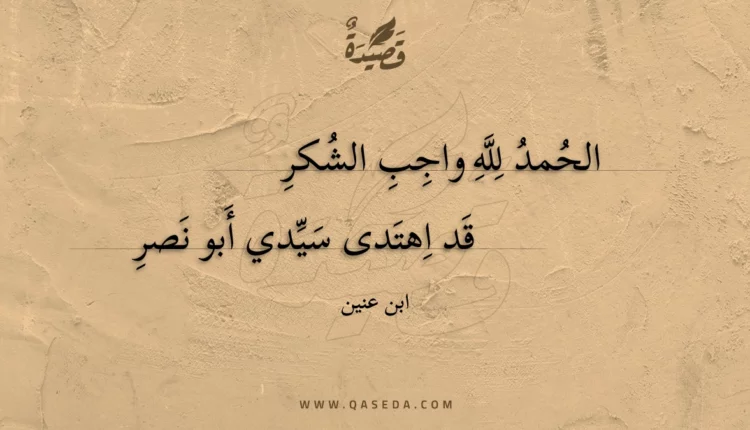 قَصِيْدَةٌ
الحُمدُ لِلَّهِ واجِبِ الشُكرِ
قَد اِهتَدى سَيِّدي أَبو نَصرِ
ابن عنين
WWW.QASEDA.COM